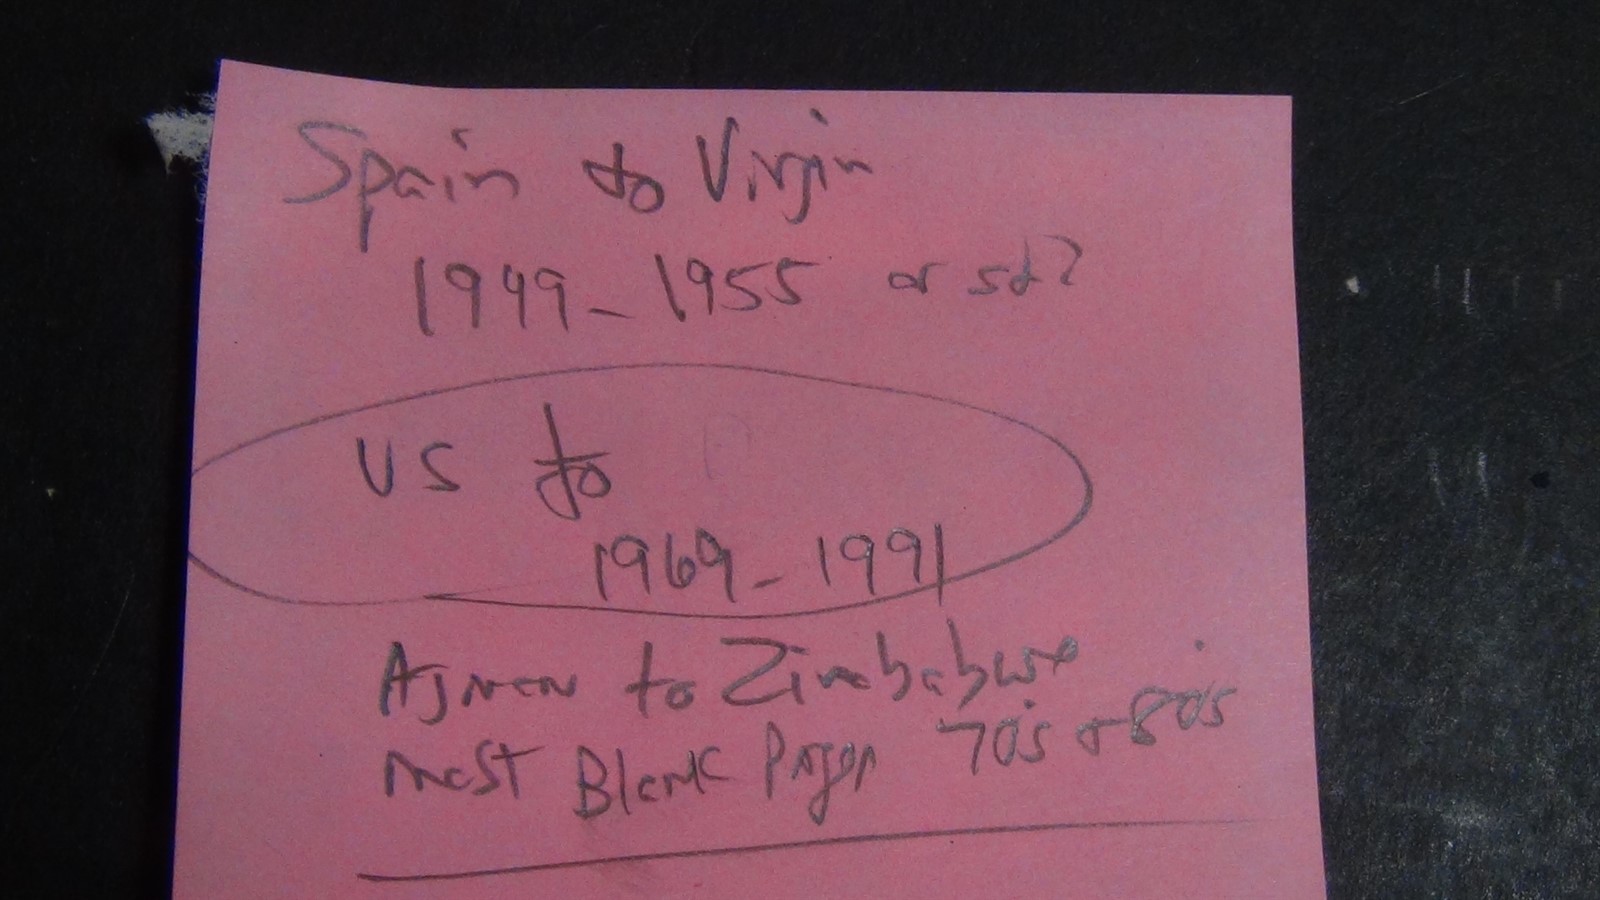 Spain to Virgin
1949-1955 or so?
US to
1969-1991
Ajman to Zimbabwe
most Blank Pages 70's + 80's